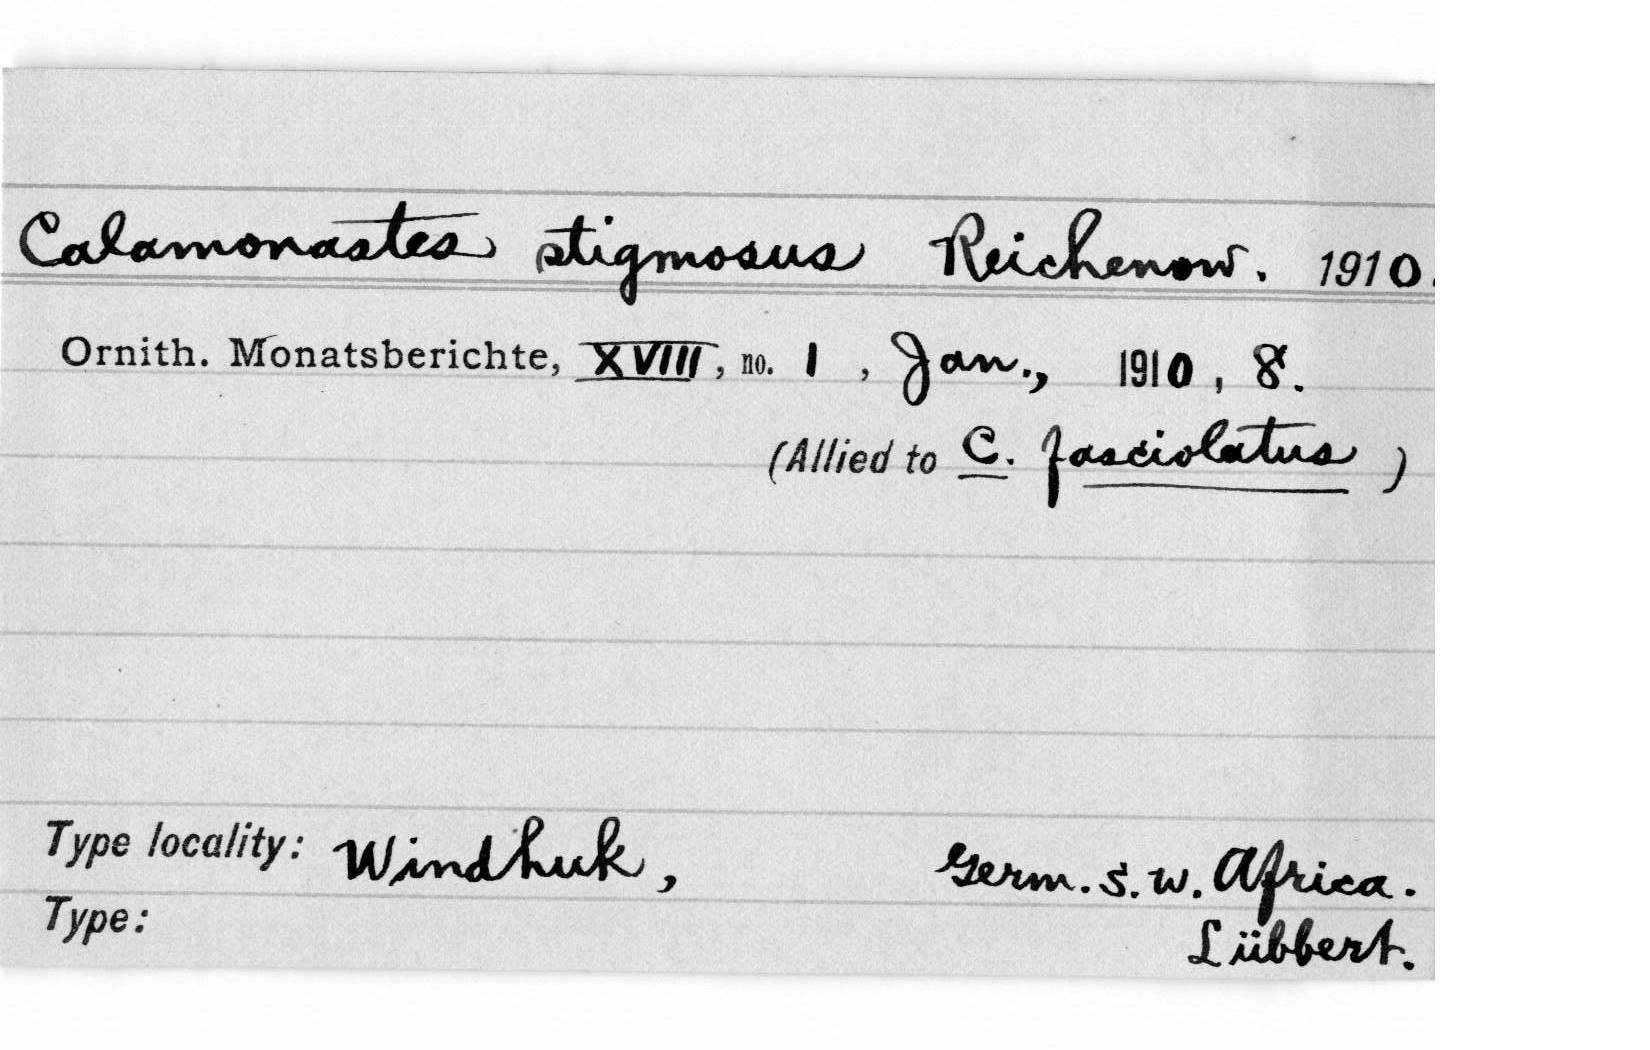 Calamonastes stigmosus Reichenow. 1910.
Ornith. Monatsberichte, XVIII, no. 1, Jan., 1910, 8.
(Allied to C. fasciolatus)
Type locality: Windhuk, Germ. S. W. Africa.
Type: Lübbert.